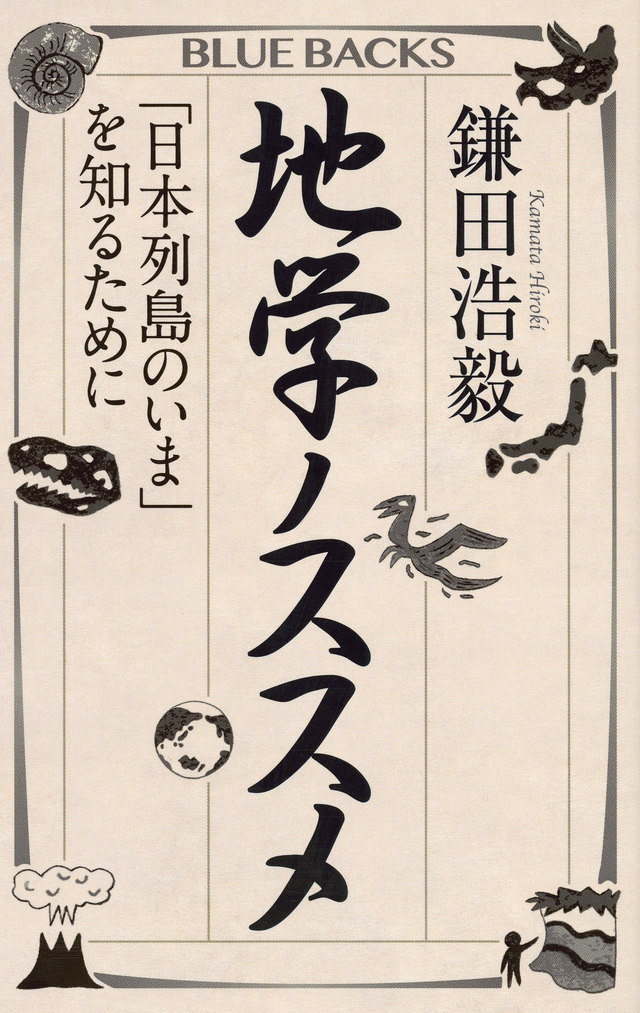 BLUE BACKS
鎌田浩毅
Kamata Hiroki
地学ノススメ
「日本列島のいま」
を知るために